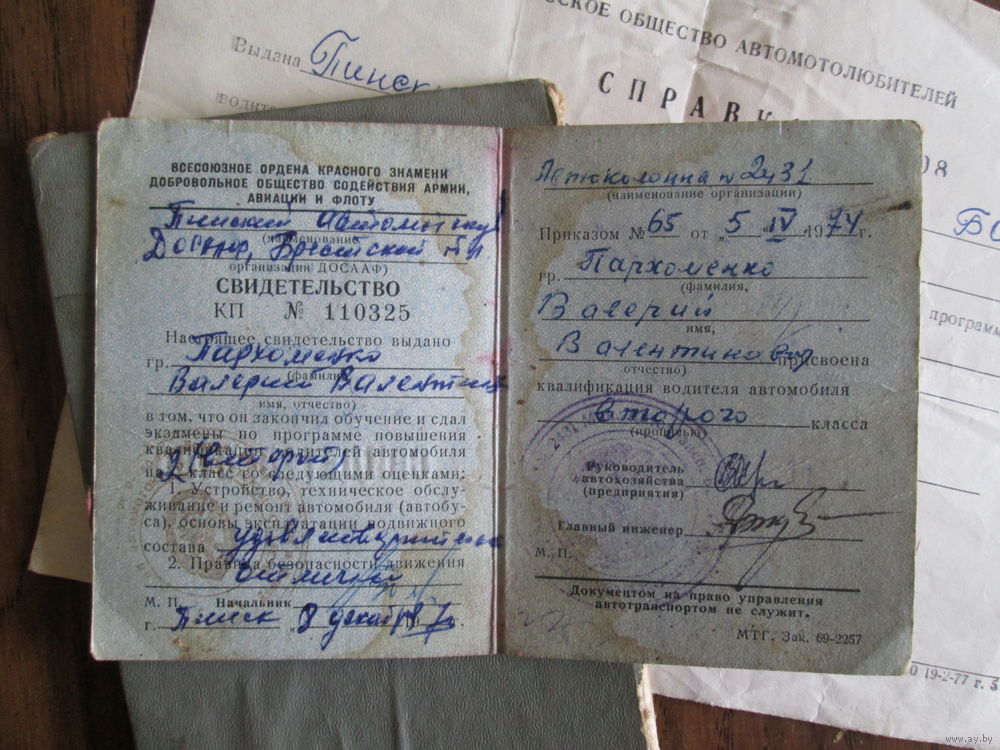 СКОЕ ОБЩЕСТВО АВТОМОТОЛЮБИТЕЛЕЙ
СПРАВК
Выдана Пинск
ВСЕСОЮЗНОЕ ОРДЕНА КРАСНОГО ЗНАМЕНИ
ДОБРОВОЛЬНОЕ ОБЩЕСТВО СОДЕЙСТВИЯ АРМИИ,
АВИАЦИИ И ФЛОТУ
Пинский
(наименование
Досааф, Брестской
организации ДОСААФ)
СВИДЕТЕЛЬСТВО
КП № 110325
Настоящее свидетельство выдано
гр. Пархоменко
(фамилия,
Валерий Валентин
имя, отчество)
в том, что он закончил обучение и сдал
экзамены по программе повышения
квалификации водителей автомобиля
на 2 (второй) класс со следующими оценками:
1. Устройство, техническое обслу-
живание и ремонт автомобиля (автобу-
са), основы эксплуатации подвижного
состава удовлетворительно
2. Правила безопасности движения
отлично
М. П. Начальник
г. Пинск „8 декабря
Автоколонна № 2431
(наименование организации)
Приказом № 65 от „5“ IV 1974 г.
гр. Пархоменко
(фамилия,
Валерий
имя,
Валентинович присвоена
отчество)
квалификация водителя автомобиля
второго класса
(прописью)
Руководитель
автохозяйства
(предприятия)
Главный инженер
М. П.
Документом на право управления
автотранспортом не служит.
МТГ. Зак. 69-2257
08
Во
программ
19-2-77 г.
www.ay.by